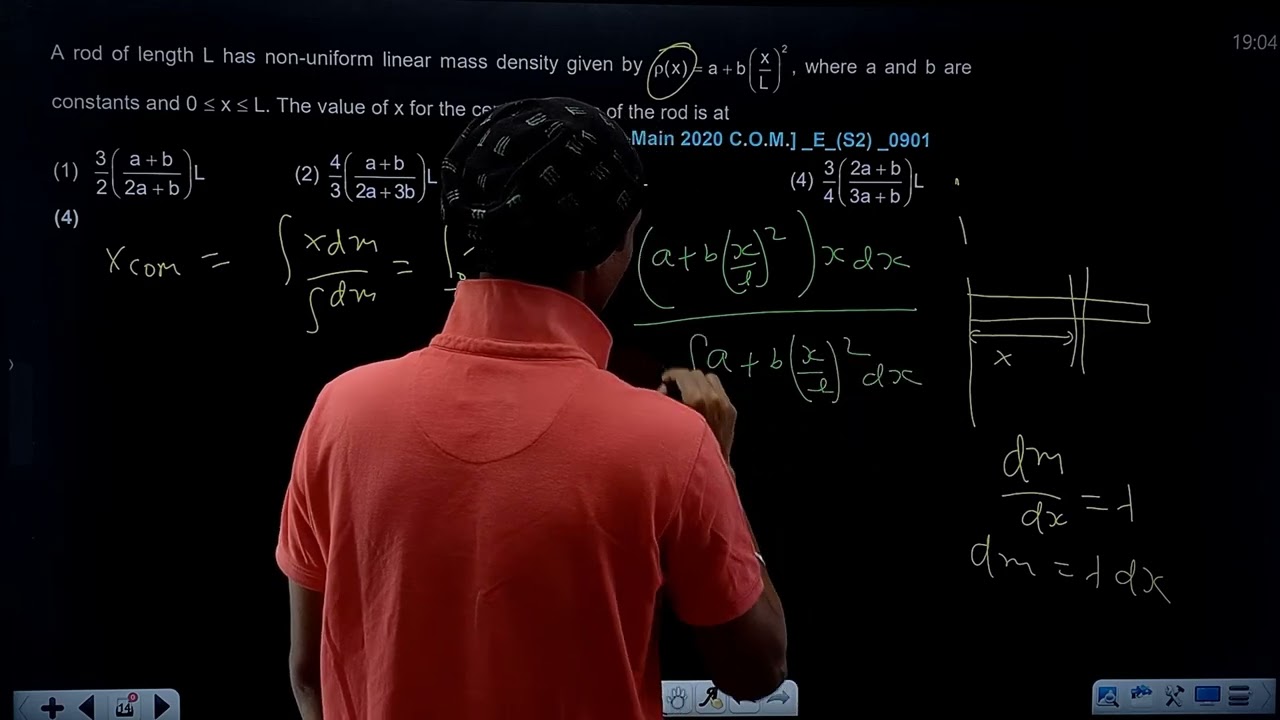 19:04
A rod of length L has non-uniform linear mass density given by ρ(x) = a + b(x/L)², where a and b are
constants and 0 ≤ x ≤ L. The value of x for the ce of the rod is at
Main 2020 C.O.M.] _E_(S2) _0901
(1) 3/2 ((a+b)/(2a+b)) L (2) 4/3 ((a+b)/(2a+3b)) L (4) 3/4 ((2a+b)/(3a+b)) L
(4)
x com = ∫xdm / ∫dm = (a+b(x/l)²) x dx / ∫a+b(x/l)² dx
x
dm/dx = λ
dm = λ dx
14